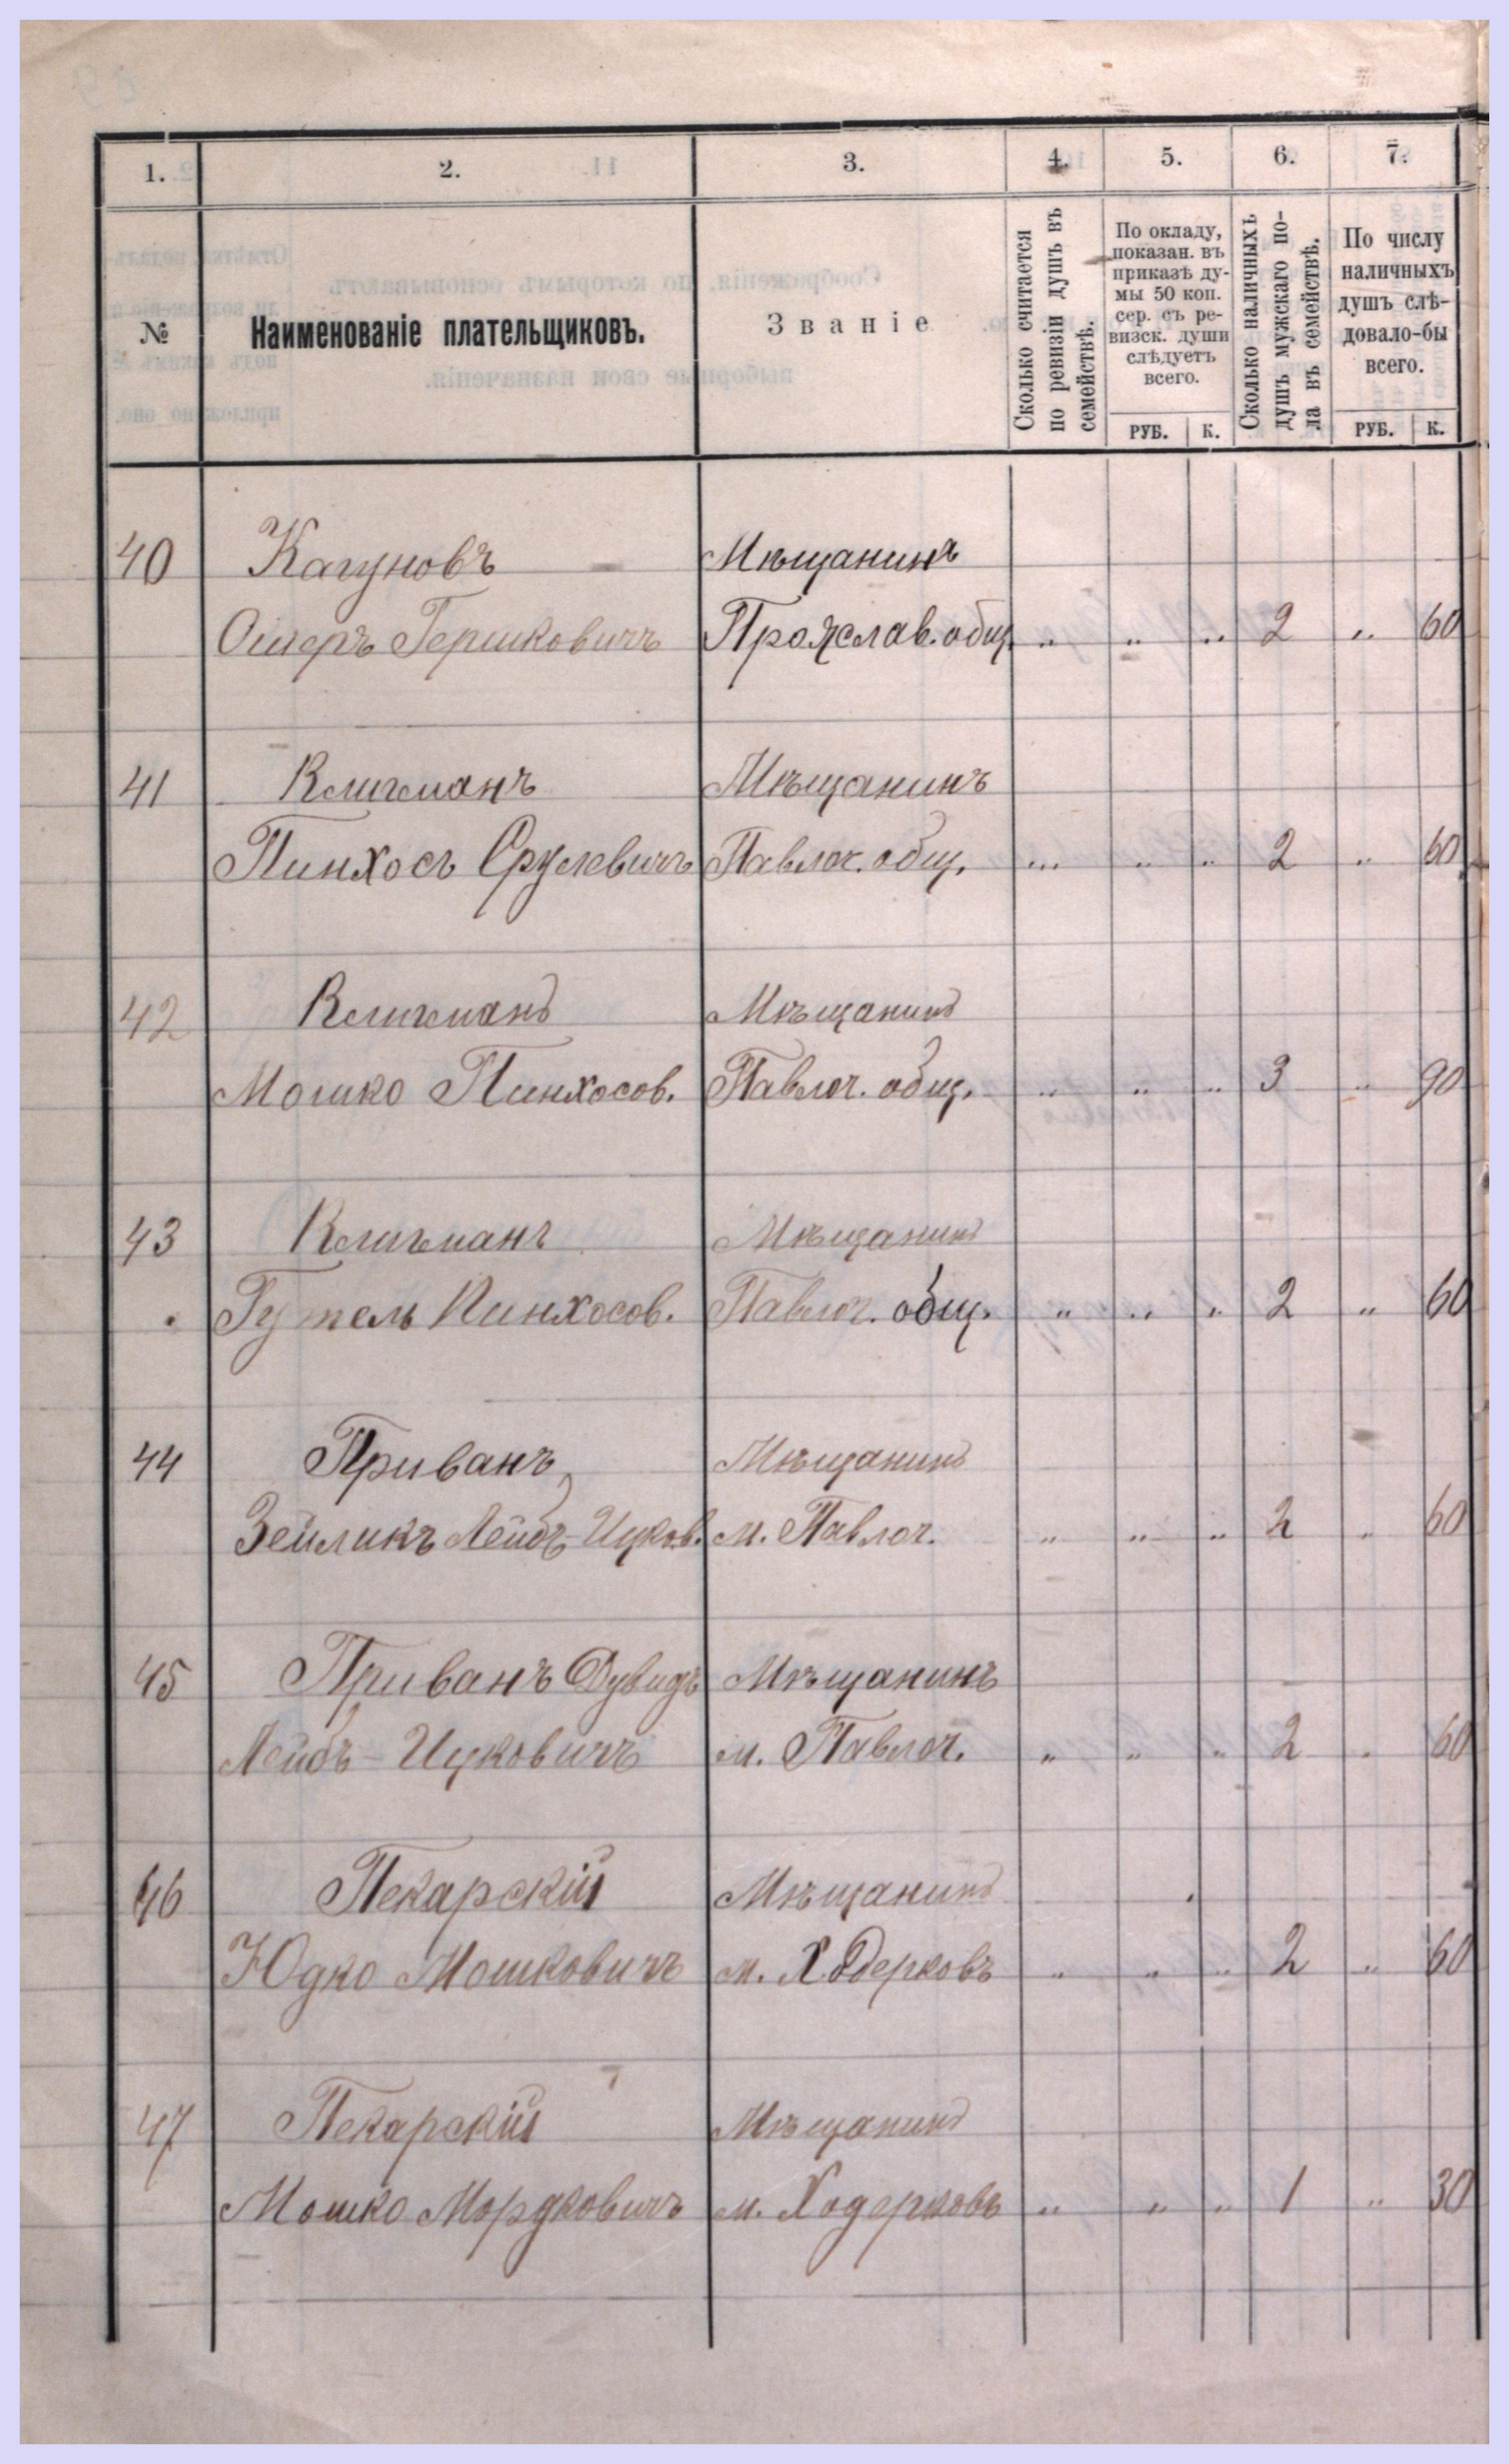 1. 2. 3. 4. 5. 6. 7.
№
Наименованіе плательщиковъ.
Званіе
Сколько считается
по ревизіи душъ въ
семействѣ.
По окладу,
показан. въ
приказѣ ду-
мы 50 коп.
сер. съ ре-
визск. души
слѣдуетъ
всего.
РУБ. К.
Сколько наличныхъ
душъ мужскаго по-
ла въ семействѣ.
По числу
наличныхъ
душъ слѣ-
довало-бы
всего.
РУБ. К.
40 Кагуновъ Мѣщанинъ
Ошеръ Гершковичъ Прояслав. общ. „ „ „ 2 „ 60
41 Клигманъ Мѣщанинъ
Пинхосъ Срулевичъ Павлоч. общ. „ „ „ 2 „ 60
42 Клигманъ Мѣщанинъ
Мошко Пинхосов. Павлоч. общ. „ „ „ 3 „ 90
43 Клигманъ Мѣщанинъ
Гутель Пинхосов. Павлоч. общ. „ „ „ 2 „ 60
44 Приванъ Мѣщанинъ
Зейликъ Лейбъ-Ицков. м. Павлоч. „ „ „ 2 „ 60
45 Приванъ Дувидъ Мѣщанинъ
Лейбъ-Ицковичъ м. Павлоч. „ „ „ 2 „ 60
46 Пекарскій Мѣщанинъ
Юдко Мошковичъ м. Ходерковъ „ „ „ 2 „ 60
47 Пекарскій Мѣщанинъ
Мошко Мордковичъ м. Ходорковъ „ „ „ 1 „ 30